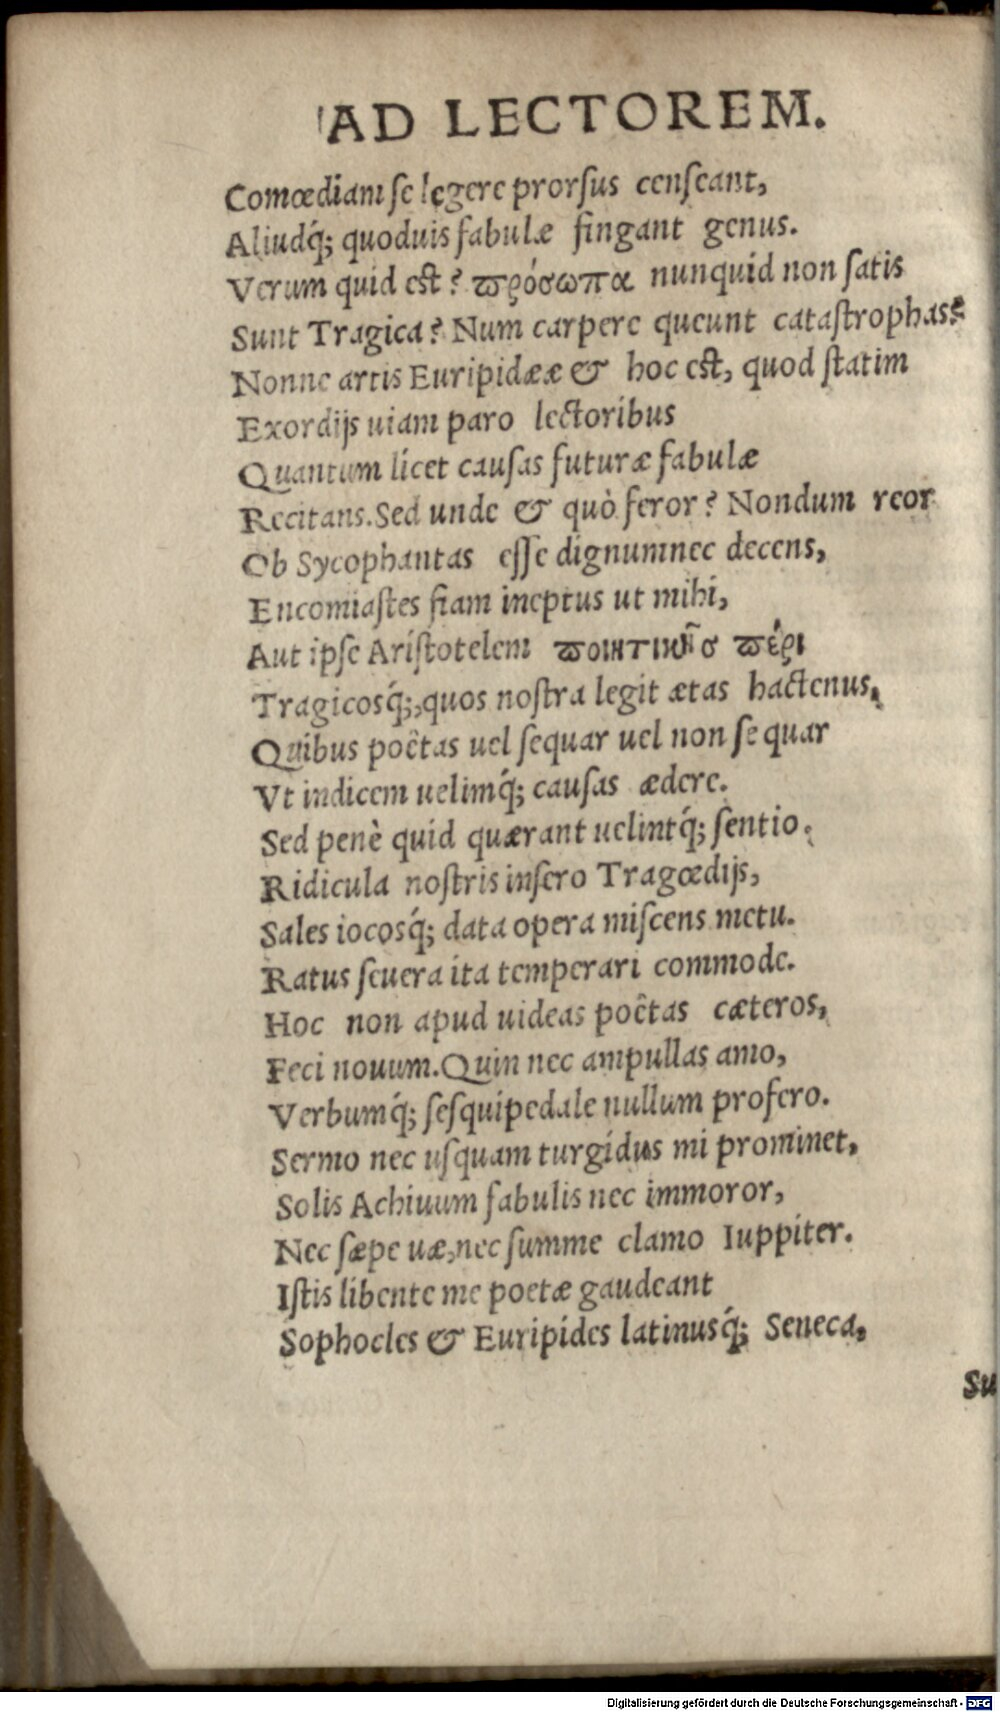 AD LECTOREM.
Comœdiam ſe legere prorſus cenſeant,
Aliudq́; quoduis fabulæ fingant genus.
Verum quid est? ϖρόσωπα nunquid non ſatis
Sunt Tragica? Num carpere queunt cataſtrophas?
Nonne artis Euripidææ & hoc est, quod ſtatim
Exordijs uiam paro lectoribus
Quantum licet cauſas futuræ fabulæ
Recitans. Sed unde & quò feror? Nondum reor
Ob Sycophantas eſſe dignumnec decens,
Encomiaſtes fiam ineptus ut mihi,
Aut ipſe Ariſtotelem ϖοιητικῆσ ϖέρι
Tragicosq́;,quos noſtra legit ætas hactenus,
Quibus poêtas uel ſequar uel non ſequar
Vt indicem uelimq́; cauſas ædere.
Sed penè quid quærant uelintq́; ſentio.
Ridicula noſtris inſero Tragœdijs,
Sales iocosq́; data opera miſcens metu.
Ratus ſeuera ita temperari commode.
Hoc non apud uideas poêtas cæteros,
Feci nouum. Quin nec ampullas amo,
Verbumq́; ſeſquipedale nullum profero.
Sermo nec uſquam turgidus mi prominet,
Solis Achiuum fabulis nec immoror,
Nec ſæpe uæ,nec ſumme clamo Iuppiter.
Iſtis libente me poetæ gaudeant
Sophocles & Euripides latinusq́; Seneca,
Su
Digitalisierung gefördert durch die Deutsche Forschungsgemeinschaft - DFG